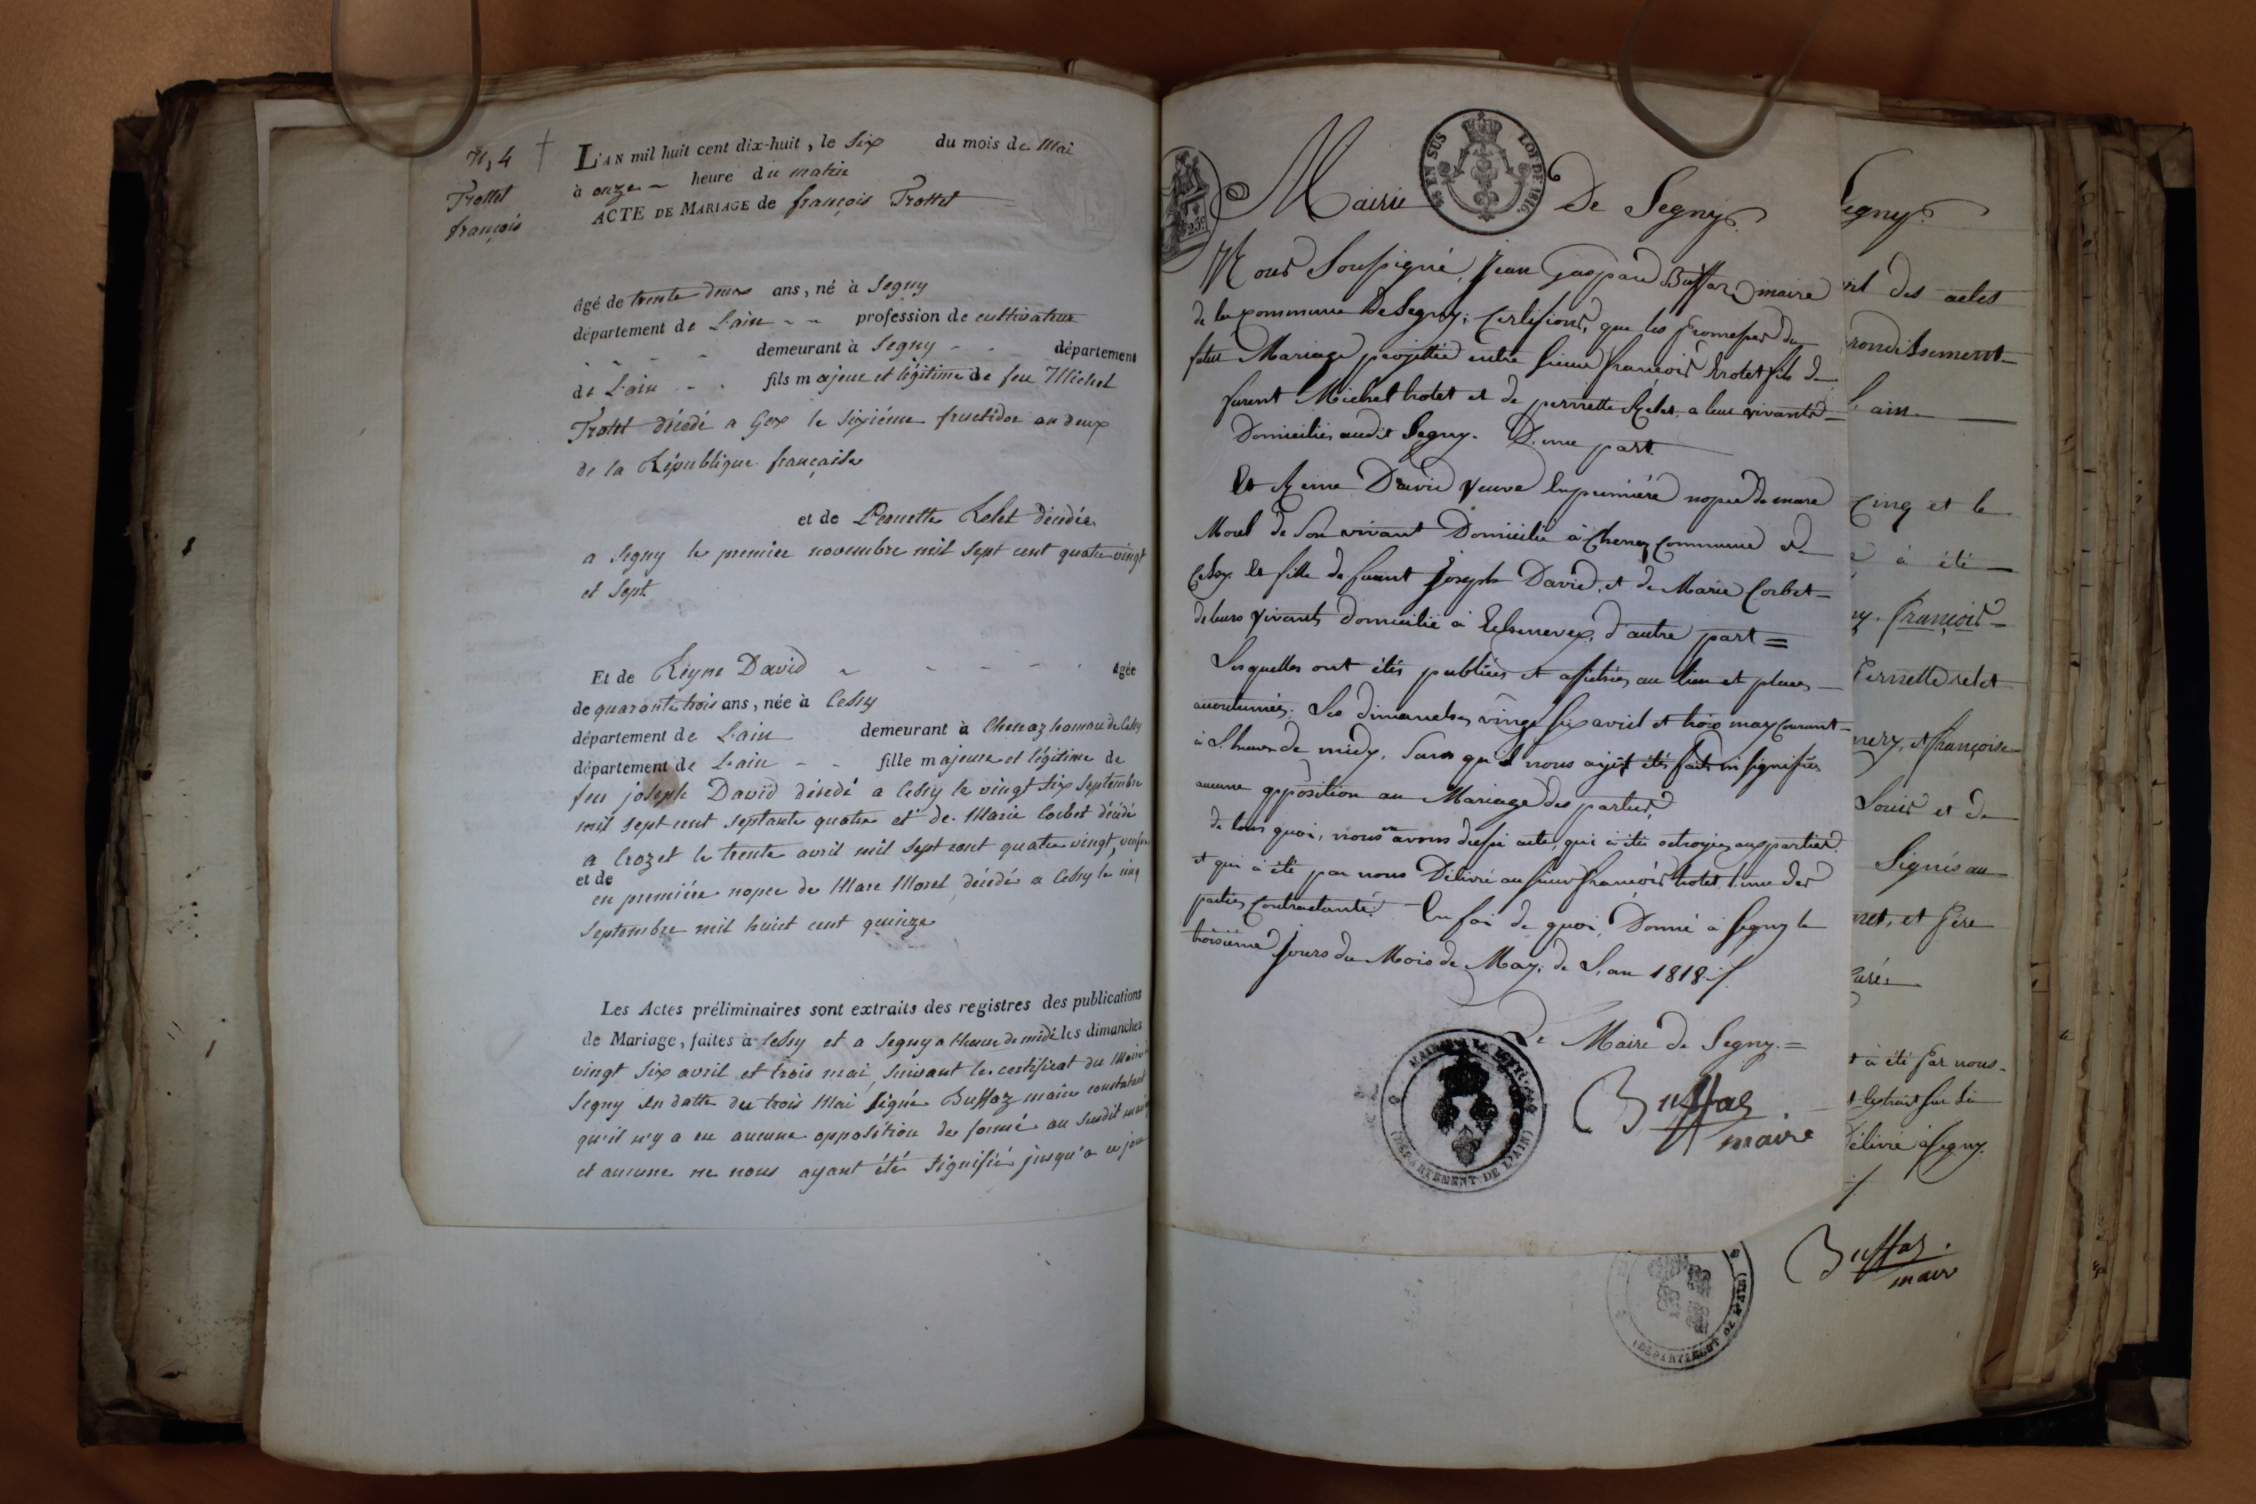 N, 4
Trottet
françois
L'AN mil huit cent dix-huit, le Six du mois de Mai
à onze heure du matin
ACTE DE MARIAGE de françois Trottet
âgé de trente deux ans, né à Segny
département de L'ain profession de cultivateur
demeurant à Segny département
de L'ain fils majeur et légitime de feu Michel
Trottet décédé a Gex le sixiéme fructidor an deux
de la République française
et de Pernette Relet décédée
a Segny le premier novembre mil sept cent quatre vingt
et sept
Et de Reyne David âgée
de quarante trois ans, née à Cessy
département de L'ain demeurant à Chenaz hameau de Cessy
département de L'ain fille majeure et légitime de
feu joseph David décédé a Cessy le vingt six septembre
mil sept cent septante quatre et de Marie Corbet décédé
a Crozet le trente avril mil sept cent quatre vingt, veuve
et de
en premiére nopce de Marc Morel décédé a Cessy le cinq
septembre mil huict cent quinze
Les Actes préliminaires sont extraits des registres des publications
de Mariage, faites à Cessy et a Segny a l'heure de midi les dimanches
vingt six avril et trois mai, suivant le certificat du Maire
Segny en datte du trois Mai signé Buffaz maire constatant
qu'il n'y a eu aucune opposition de formé au susdit mari
et aucune ne nous ayant été signifié jusqu'a ce jour
Mairie De Segny.
EN SUS LOI DE 1816.
25
Nous Soussigné, Jean Gaspard Buffaz maire
de la commune De Segny; Certifions, que les Promesses du
futur Mariage projettée entre sieur françois trotet fils de
furent Michel trotet et de pernette Relet, a leur vivants
Domiciliés audit Segny. D'une part
Et Reine David veuve En premiére nopce de marc
Morel de Son vivant Domicilié à Chenaz Commune de
Cessy. et fille de furent Joseph David, et de Marie Corbet
de leurs vivants domicilié à Echenevex, d'autre part =
Lesquelles ont étés publiées et affichées au lieu et places
accoutumées. Les dimanches vingt six avril et trois may Courant
à L'heure de midy, Sans qu'il nous ayt étés faits ni signifiées
aucune opposition au Mariage des parties,
de tous quoi, nous en avons dressé acte, qui à été octroyé aux parties
et qui à été par nous Délivré au sieur françois trotet, l'une des
parties Contractante. En foi de quoi, Donné à Segny le
troisiéme Jours du Mois de May, de L'an 1818.
Le Maire de Segny. =
Buffaz
maire
(DÉPARTEMENT DE L'AIN)
Segny.
des actes
L'ain
Cinq et le
à été
françois
Pernette relet
et françoise
Louis et de
Signés au
et Pére
Curé.
à été Par nous
Délivré à Segny.
Buffaz.
maire